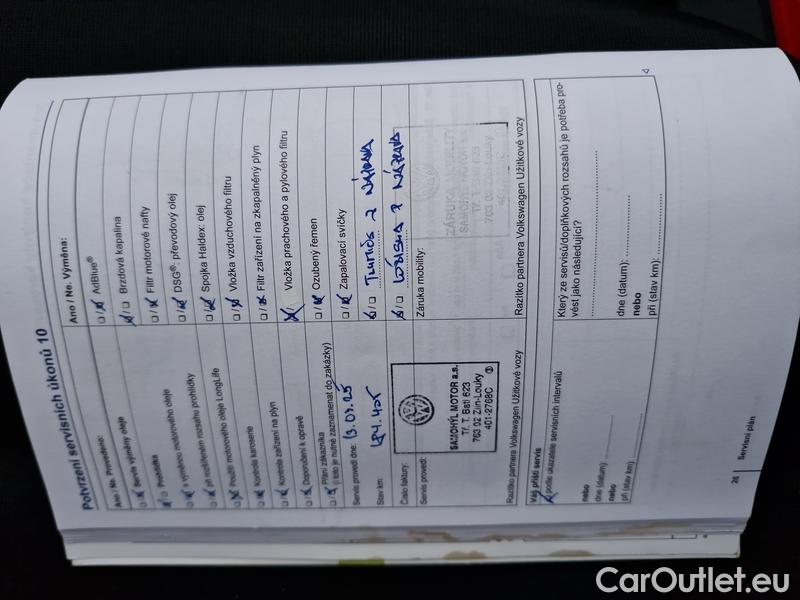 Potvrzení servisních úkonů 10
Ano / Ne. Provedeno:
Servis výměny oleje
Prohlídka
s výměnou motorového oleje
při rozšířeném rozsahu prohlídky
Použití motorového oleje LongLife
Kontrola karoserie
Kontrola zařízení na plyn
Doporučení k opravě
Přání zákazníka
(i toto je nutné zaznamenat do zakázky)
Servis provedl dne: 13.07.25
Stav km: 184.405
Číslo faktury:
Servis provedl:
SAMOHÝL MOTOR a.s.
Tř. T. Bati 623
763 02 Zlín-Louky
401-2768C
Razítko partnera Volkswagen Užitkové vozy
Ano / Ne. Výměna:
AdBlue®
Brzdová kapalina
Filtr motorové nafty
DSG®: převodový olej
Spojka Haldex: olej
Vložka vzduchového filtru
Filtr zařízení na zkapalněný plyn
Vložka prachového a pylového filtru
Ozubený řemen
Zapalovací svíčky
Záruka mobility:
Razítko partnera Volkswagen Užitkové vozy
Váš příští servis
podle ukazatele servisních intervalů
nebo
dne (datum):
nebo
při (stav km):
Který ze servisů/doplňkových rozsahů je potřeba pro-
vést jako následující?
dne (datum):
nebo
při (stav km):
26
Servisní plán
CarOutlet.eu